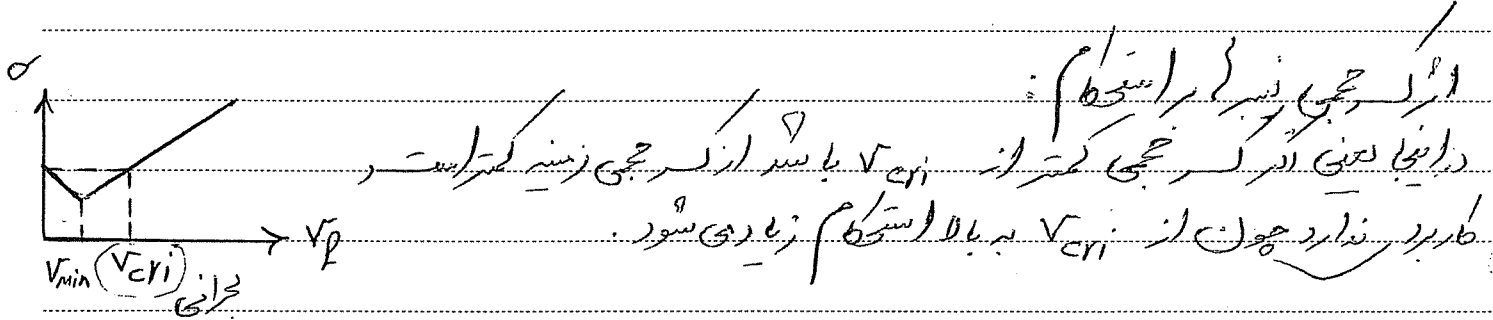 اثر کسر حجمی فیبرها بر استحکام :
در اینجا یعنی اگر کسر حجمی کمتر از Vcri باشد از کسر حجمی زمینه کمتر است و
کاربرد ندارد چون از Vcri به بالا استحکام زیاد می شود .
σ
Vf
Vmin (Vcri)
بحرانی